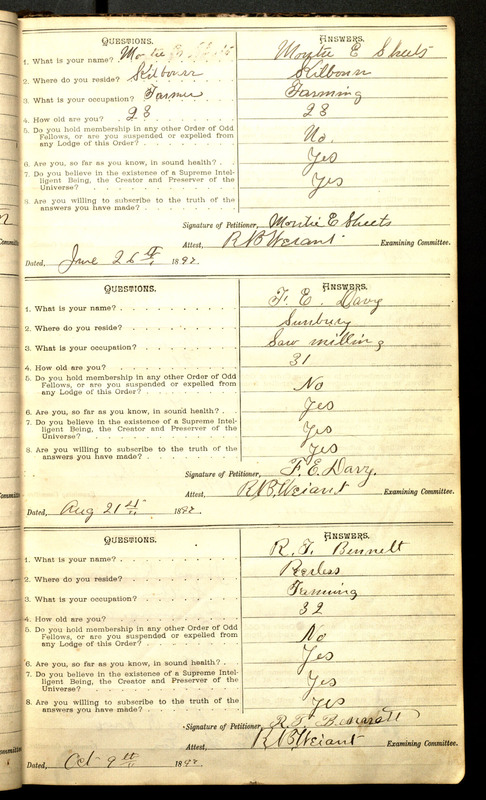 QUESTIONS. ANSWERS.
1. What is your name? Montie E Sheets Montie E Sheets
2. Where do you reside? Kilbourn Kilbourn
3. What is your occupation? Farmer Farming
4. How old are you? 28 28
5. Do you hold membership in any other Order of Odd
Fellows, or are you suspended or expelled from
any Lodge of this Order? No.
6. Are you, so far as you know, in sound health? Yes
7. Do you believe in the existence of a Supreme Intel-
ligent Being, the Creator and Preserver of the
Universe? Yes
8. Are you willing to subscribe to the truth of the
answers you have made?
Signature of Petitioner, Montie E Sheets
Attest, R B Weiant Examining Committee.
Dated, June 26th 1897
QUESTIONS. ANSWERS.
1. What is your name? F. E. Davy
2. Where do you reside? Sunbury
3. What is your occupation? Saw milling
4. How old are you? 31
5. Do you hold membership in any other Order of Odd
Fellows, or are you suspended or expelled from
any Lodge of this Order? No
6. Are you, so far as you know, in sound health? Yes
7. Do you believe in the existence of a Supreme Intel-
ligent Being, the Creator and Preserver of the
Universe? Yes
8. Are you willing to subscribe to the truth of the
answers you have made? Yes
Signature of Petitioner, F. E. Davy.
Attest, R. B. Weiant Examining Committee.
Dated, Aug 21st 1897
QUESTIONS. ANSWERS.
1. What is your name? R. F. Bennett
2. Where do you reside? Peerless
3. What is your occupation? Farming
4. How old are you? 32
5. Do you hold membership in any other Order of Odd
Fellows, or are you suspended or expelled from
any Lodge of this Order? No
6. Are you, so far as you know, in sound health? Yes
7. Do you believe in the existence of a Supreme Intel-
ligent Being, the Creator and Preserver of the
Universe? Yes
8. Are you willing to subscribe to the truth of the
answers you have made? Yes
Signature of Petitioner, R. F.
Attest, R B Weiant Examining Committee.
Dated, Oct 9th 1897